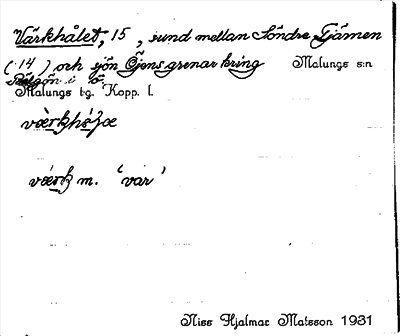 Värkhålet, 15, sund mellan Söndre Tjämen
(14) och sjön Öjens grenar kring Malungs sn
i ö.
Malungs tg. Kopp. l.
værkhɷ́læ
værk m. 'var'
Niss Hjalmar Matsson 1931